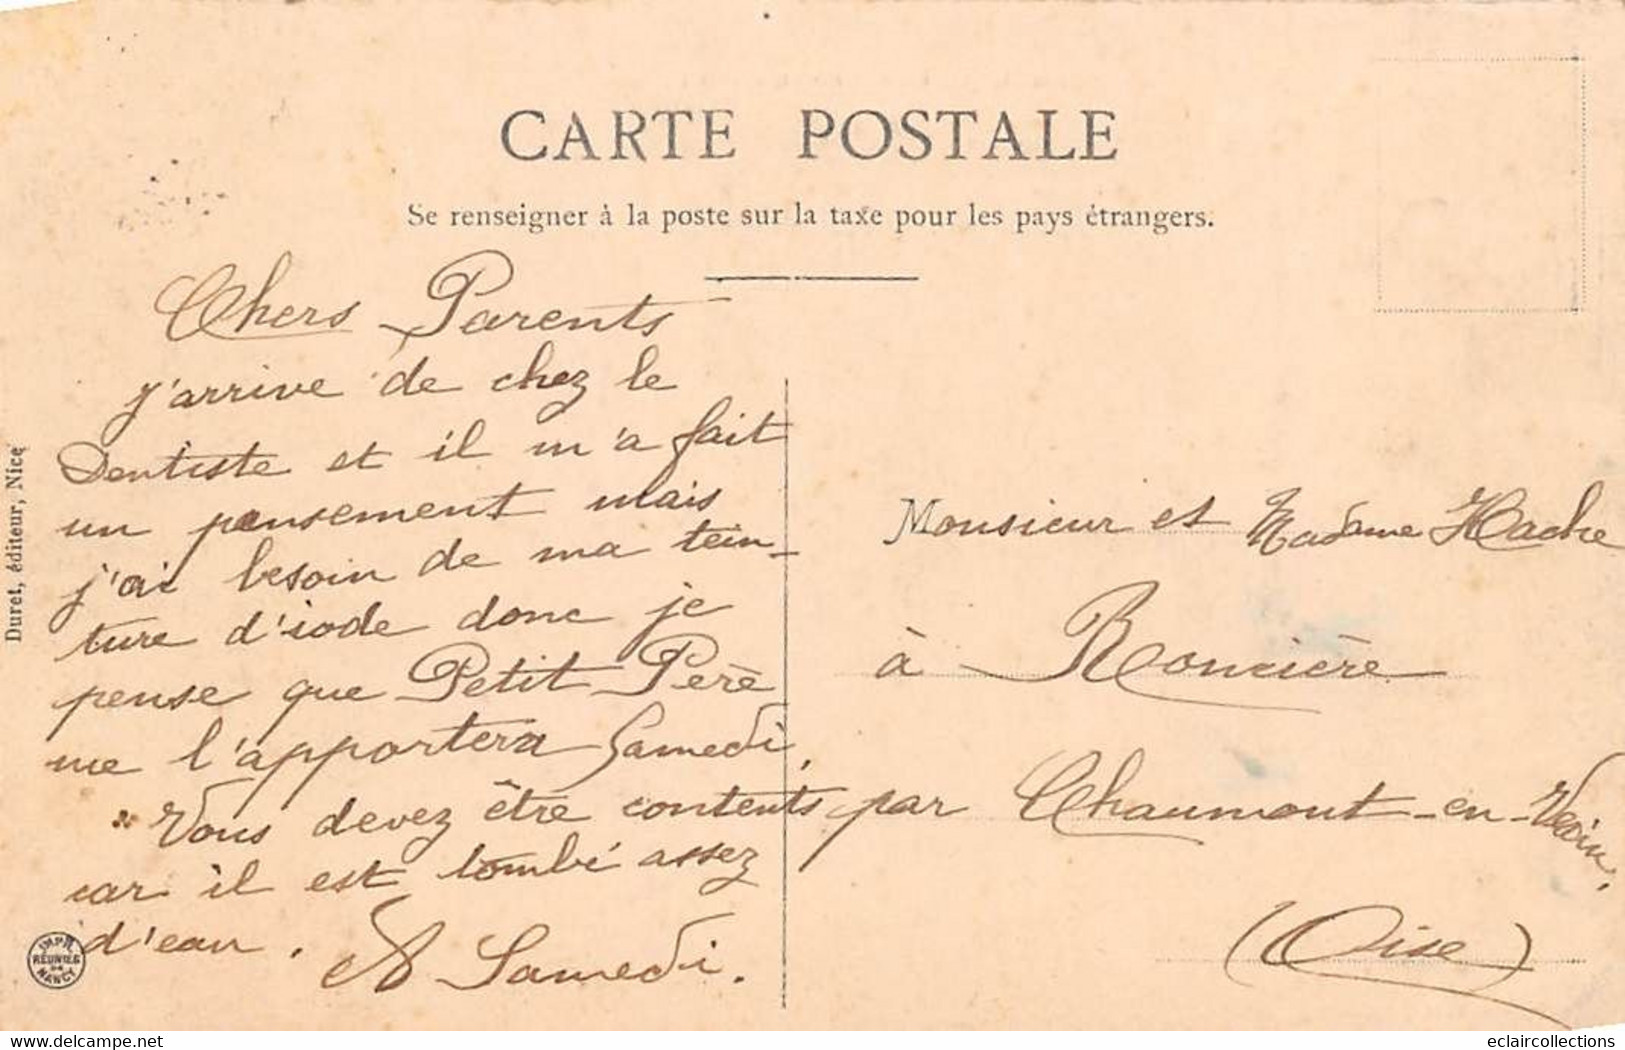 CARTE POSTALE
Se renseigner à la poste sur la taxe pour les pays étrangers.
Chers Parents
j'arrive de chez le
Dentiste et il m'a fait
un pansement mais
j'ai besoin de ma tein-
ture d'iode donc je
pense que Petit Père
me l'apportera Samedi,
Vous devez être contents
car il est tombé assez
d'eau. A Samedi.
Monsieur et Madame Hache
à Roncière
par Chaumont-en-Vexin,
(Oise)
Duret, éditeur, Nice
IMPR.
REUNIES
DE
NANCY
www.delcampe.net
eclaircollections